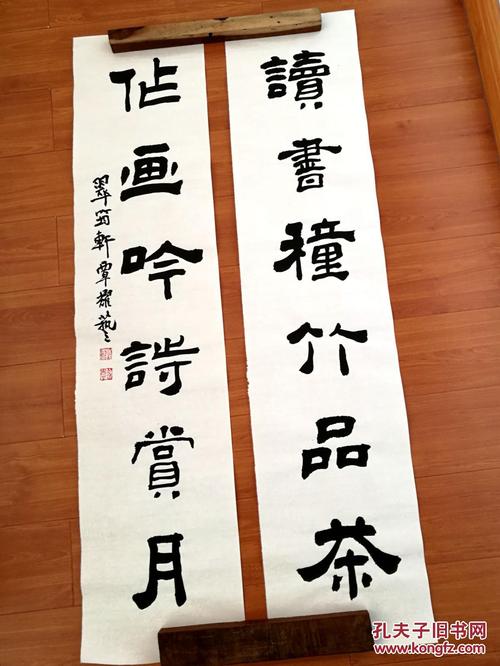 讀書穜竹品茶
作画吟詩賞月
翠筠軒覃耀藝
孔夫子旧书网
www.kongfz.com